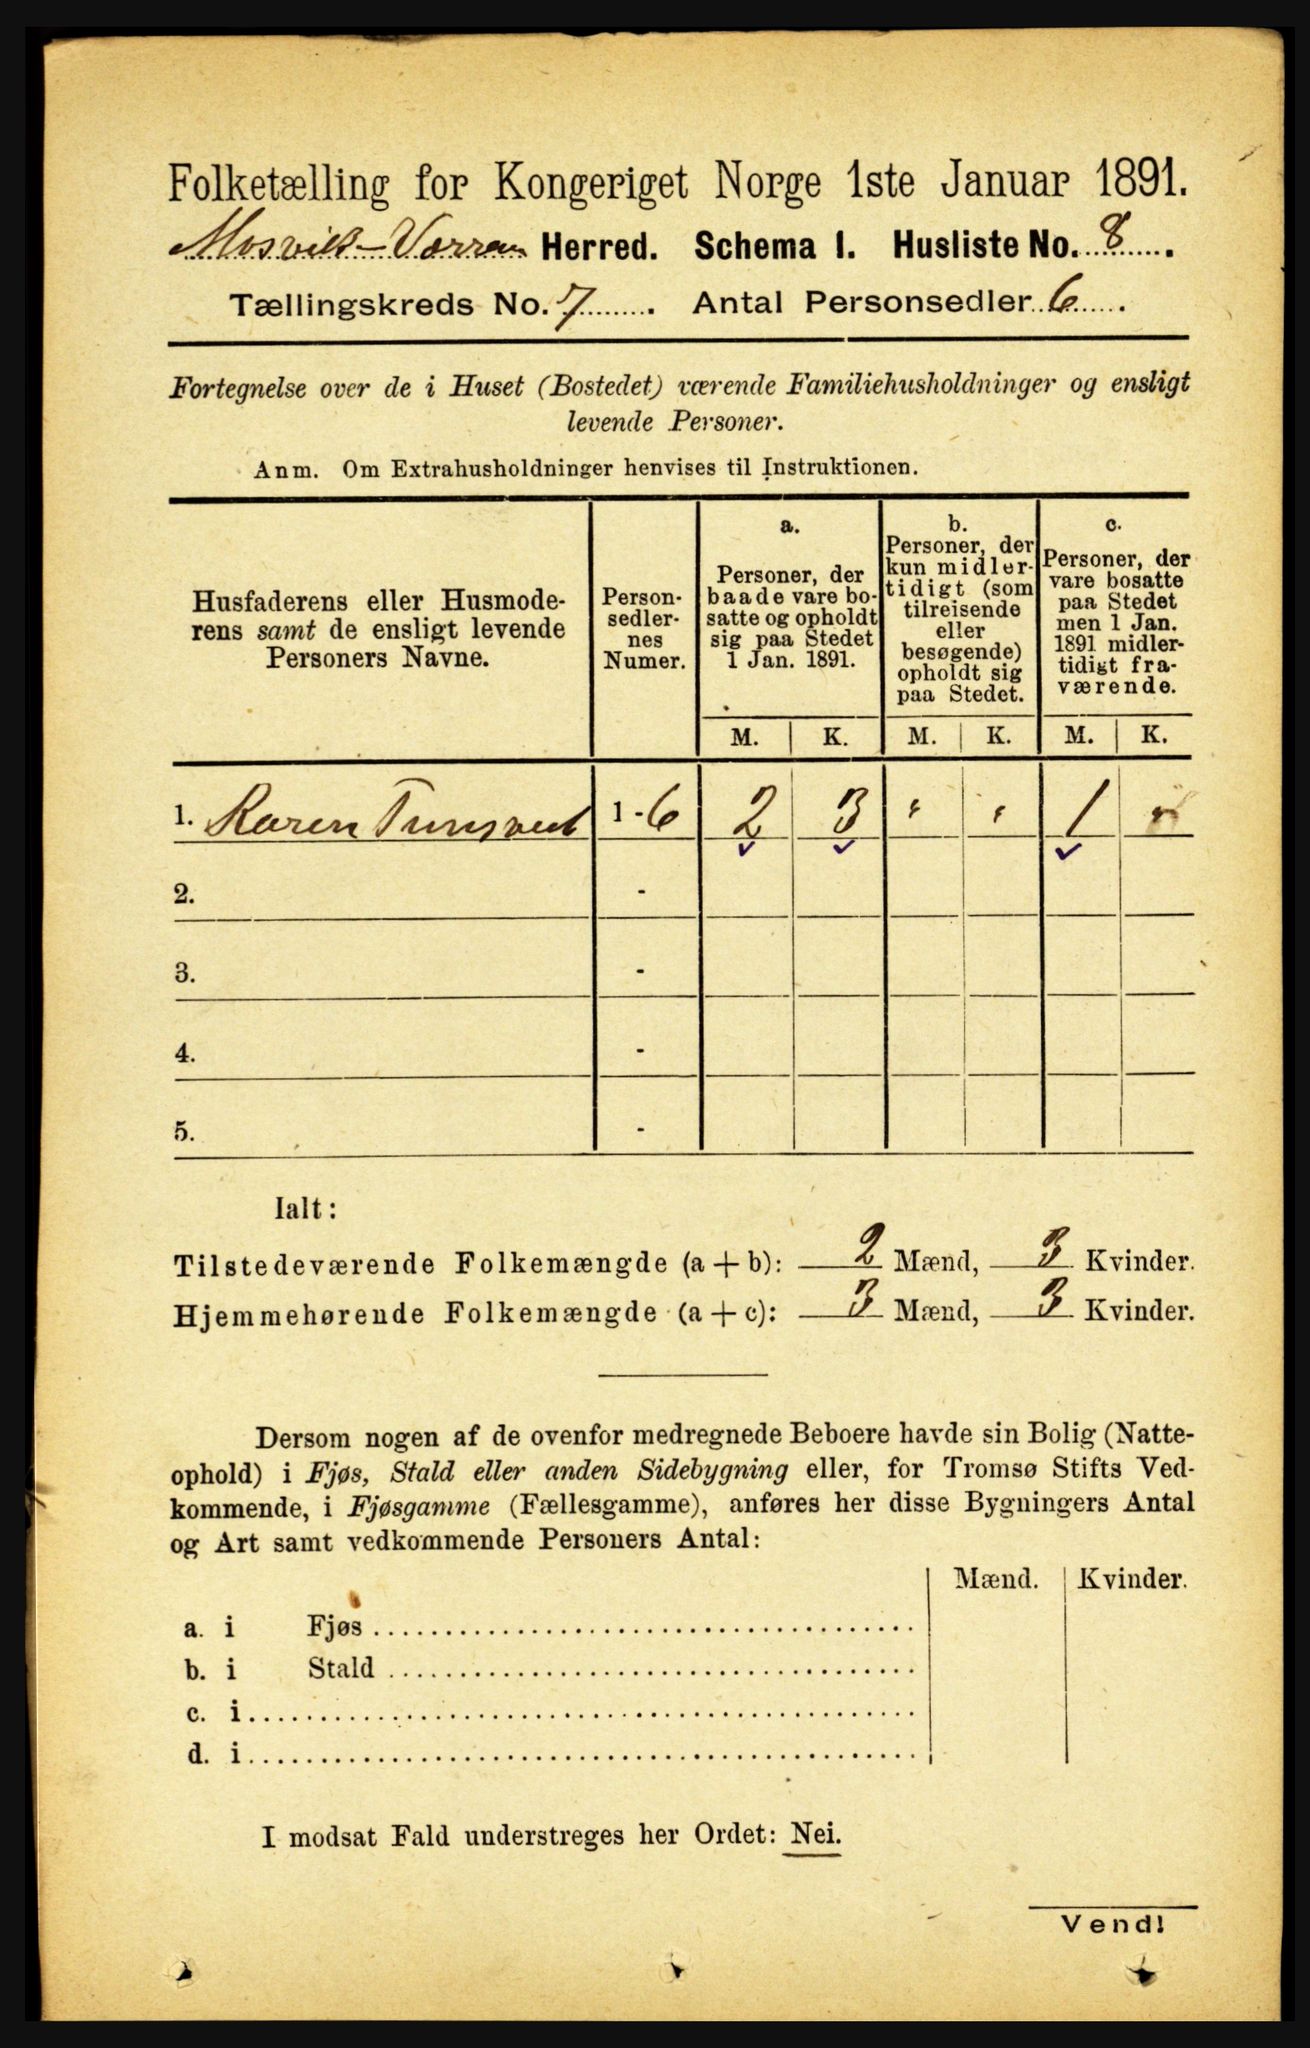 Folketælling for Kongeriget Norge 1ste Januar 1891.
Mosvik-Verran Herred. Schema I. Husliste No. 8.
Tællingskreds No. 7. Antal Personsedler 6.
Fortegnelse over de i Huset (Bostedet) værende Familiehusholdninger og ensligt
levende Personer.
Anm. Om Extrahusholdninger henvises til Instruktionen.
Husfaderens eller Husmode-
rens samt de ensligt levende
Personers Navne.
Person-
sedler-
nes
Numer.
a.
Personer, der
baade vare bo-
satte og opholdt
sig paa Stedet
1 Jan. 1891.
b.
Personer, der
kun midler-
tidigt (som
tilreisende
eller
besøgende)
opholdt sig
paa Stedet.
c.
Personer, der
vare bosatte
paa Stedet
men 1 Jan.
1891 midler-
tidigt fra-
værende.
M. K. M. K. M. K.
1. Karen 1-6 2 3 " " 1 "
2. -
3. -
4. -
5. -
Ialt:
Tilstedeværende Folkemængde (a+b): 2 Mænd, 3 Kvinder.
Hjemmehørende Folkemængde (a+c): 3 Mænd, 3 Kvinder.
Dersom nogen af de ovenfor medregnede Beboere havde sin Bolig (Natte-
ophold) i Fjøs, Stald eller anden Sidebygning eller, for Tromsø Stifts Ved-
kommende, i Fjøsgamme (Fællesgamme), anføres her disse Bygningers Antal
og Art samt vedkommende Personers Antal:
Mænd. Kvinder.
a. i Fjøs
b. i Stald
c. i
d. i
I modsat Fald understreges her Ordet: Nei.
Vend!